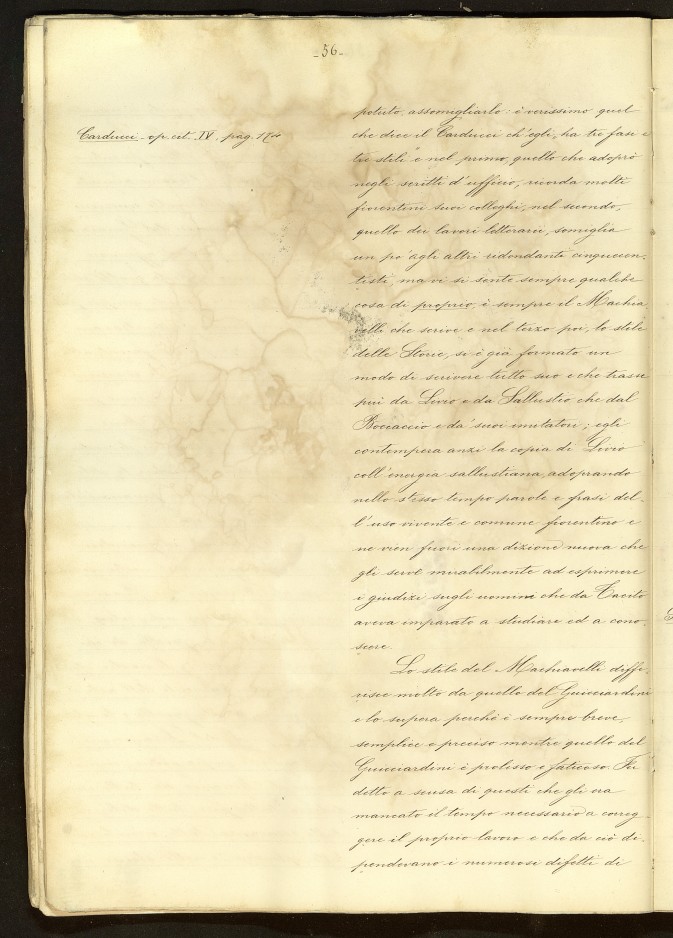 -56-
Carducci - op. cit. IV, pag. 174
potuto, assomigliarlo: è verissimo quel
che dice il Carducci ch'egli, ha tre fasi e
tre stili e nel primo, quello che adoprò
negli scritti d'ufficio, ricorda molti
fiorentini suoi colleghi, nel secondo,
quello dei lavori letterarii, somiglia
un po' agli altri ridondanti cinquecen-
tisti, ma vi si sente sempre qualche
cosa di proprio, è sempre il Machia
velli che scrive e nel terzo poi, lo stile
delle Storie, si è già formato un
modo di scrivere tutto suo e che trasse
più da Livio e da Sallustio che dal
Boccaccio e da' suoi imitatori; egli
contempera anzi la copia di Livio
coll'energia sallustiana, adoprando
nello stesso tempo parole e frasi del-
l'uso vivente e comune fiorentino e
ne vien fuori una dizione nuova che
gli serve mirabilmente ad esprimere
i giudizi sugli uomini che da Tacito
aveva imparato a studiare ed a cono-
scere.
Lo stile del Machiavelli diffe-
risce molto da quello del Guicciardini
e lo supera perchè è sempre breve,
semplice e preciso mentre quello del
Guicciardini è prolisso e faticoso. Fu
detto a scusa di questi che gli era
mancato il tempo necessario a correg-
gere il proprio lavoro e che da ciò di-
pendevano i numerosi difetti di